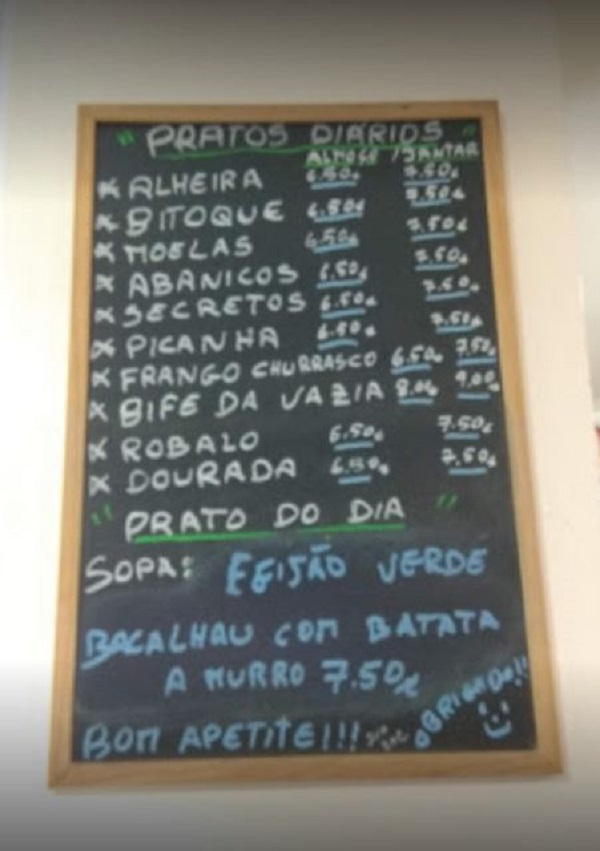 " PRATOS DIÁRIOS "
ALMOÇO / JANTAR
* ALHEIRA 6.50€ 7.50€
* BITOQUE 6.50€ 7.50€
* MOELAS 6.50€ 7.50€
* ABANICOS 6.50€ 7.50€
* SECRETOS 6.50€ 7.50€
* PICANHA 6.50€ 7.50€
* FRANGO CHURRASCO 6.50€ 7.50€
* BIFE DA VAZIA 8.00€ 9.00€
* ROBALO 6.50€ 7.50€
* DOURADA 6.50€ 7.50€
" PRATO DO DIA "
SOPA: FEIJÃO VERDE
BACALHAU COM BATATA
A MURRO 7.50€
BOM APETITE!!!
OBRIGADO!!